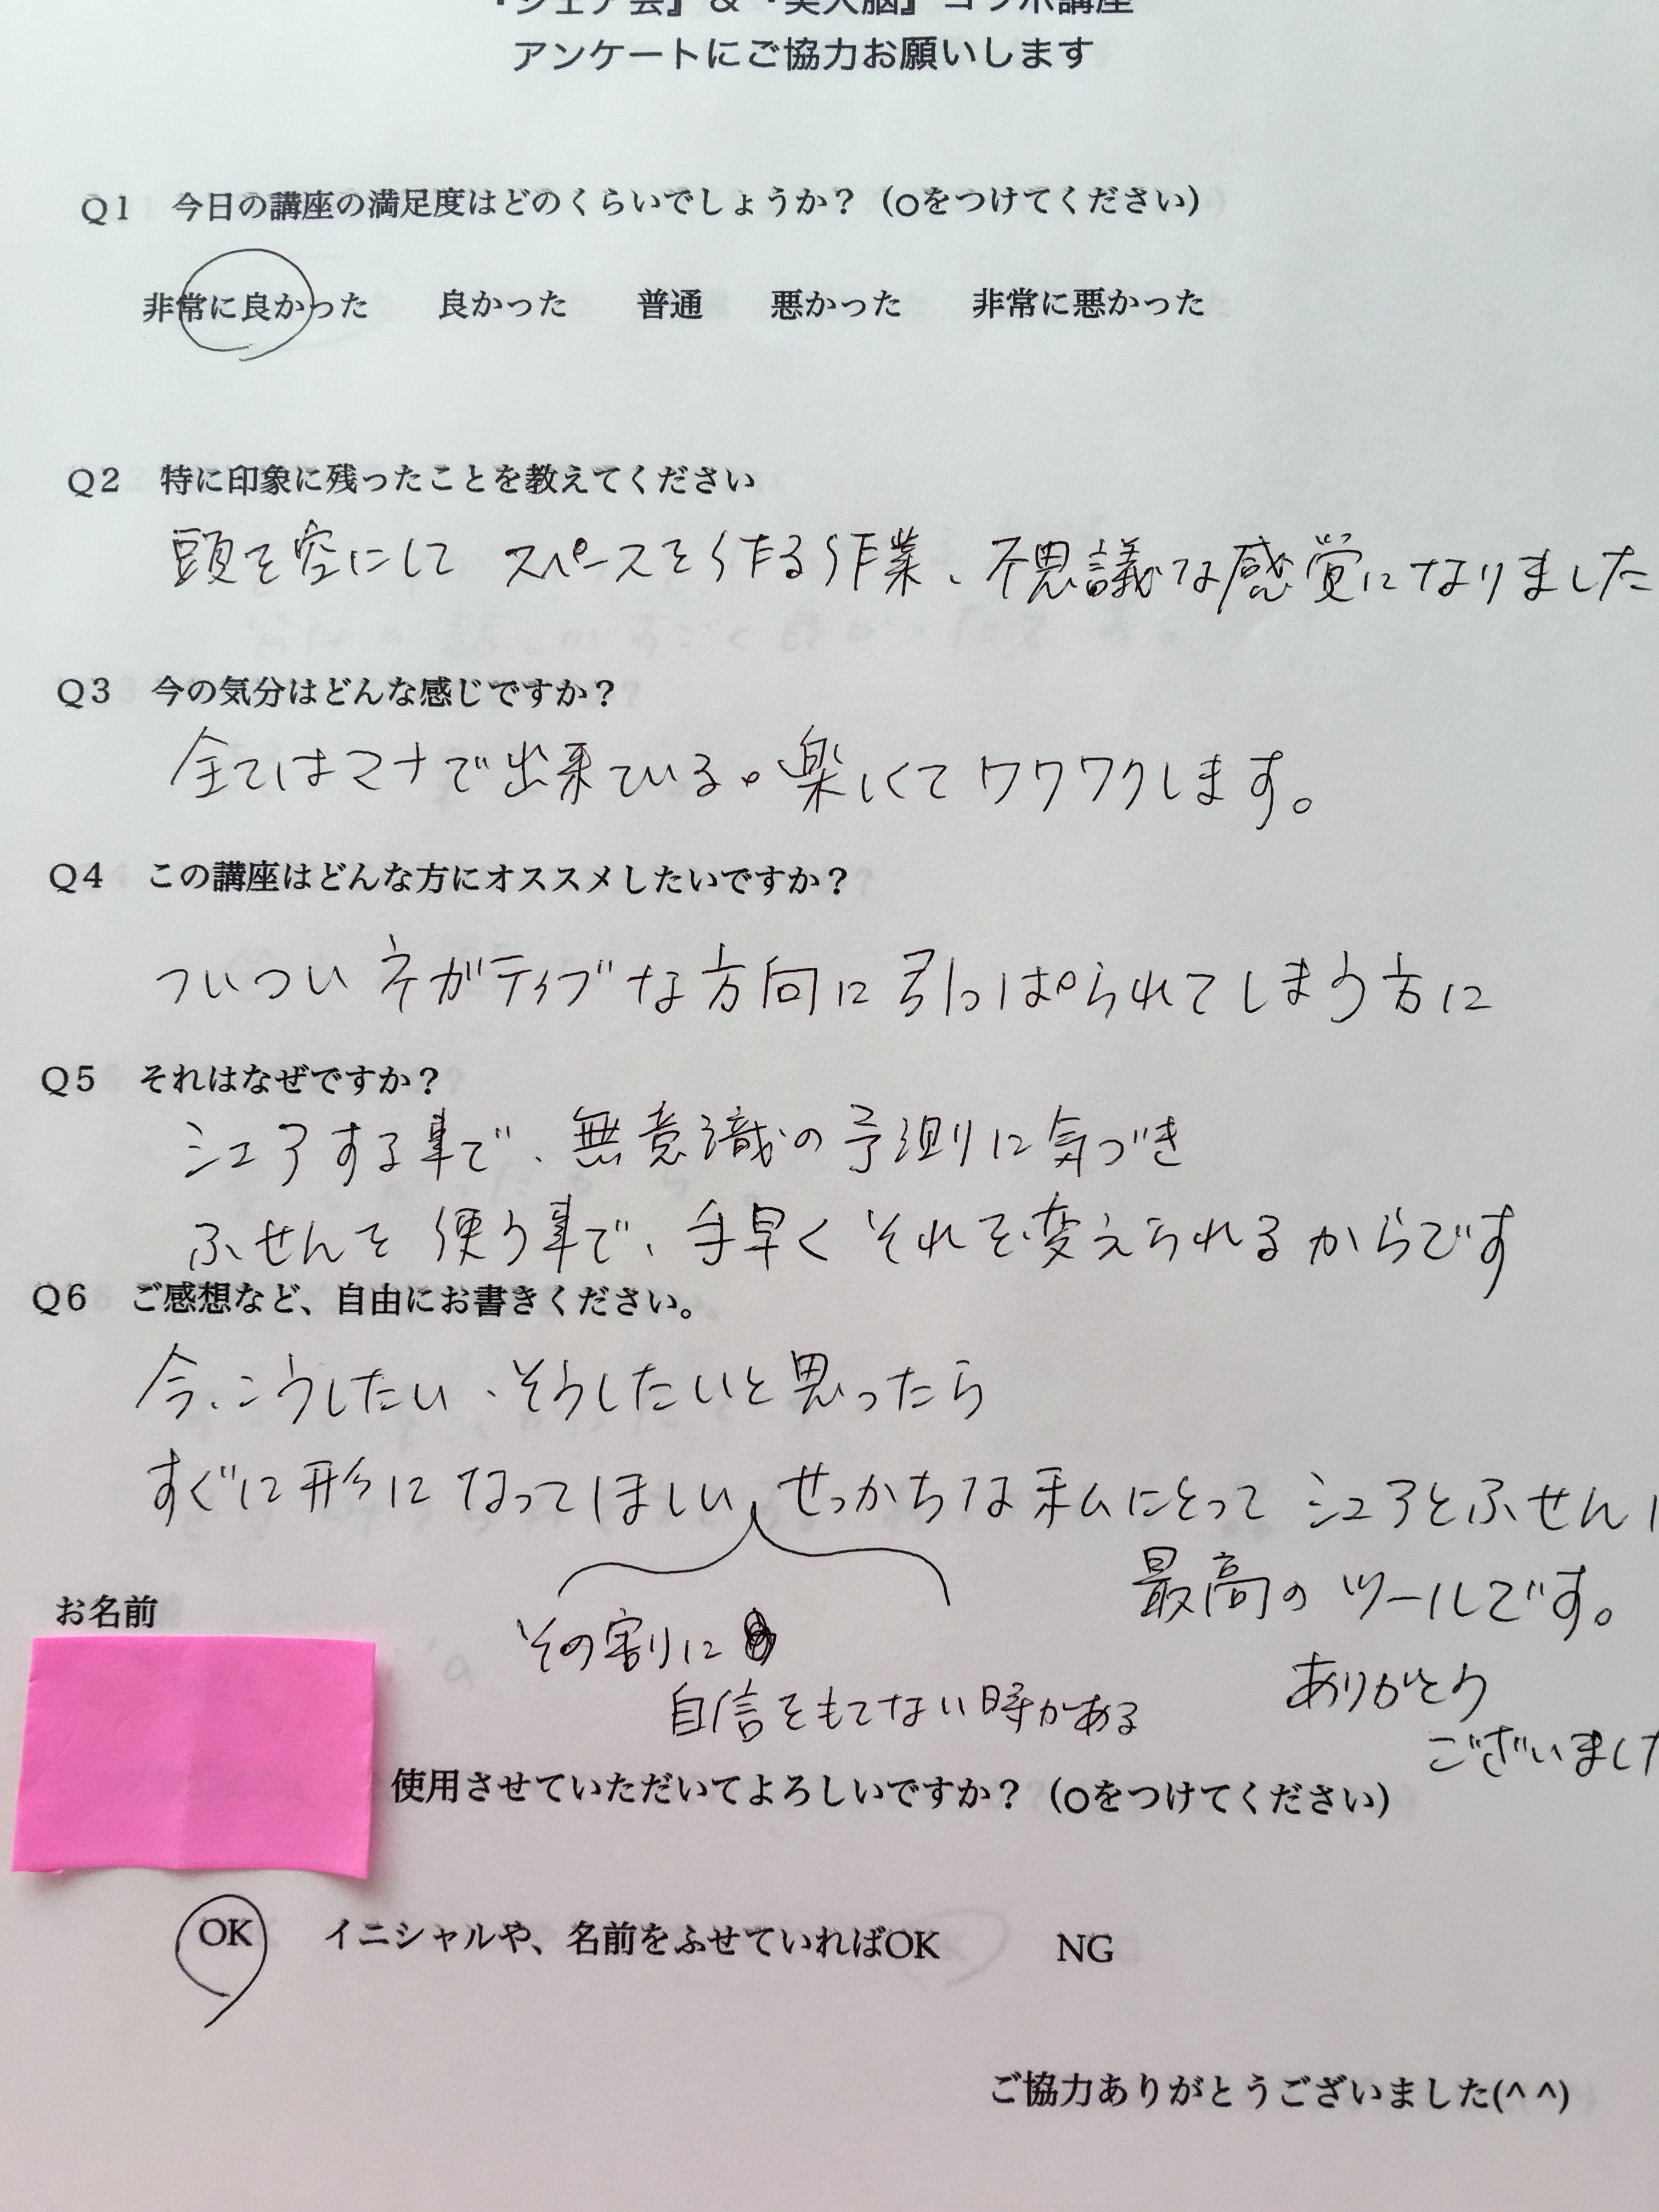 『シェア会』&『美人脳』コラボ講座
アンケートにご協力お願いします
Q1 今日の講座の満足度はどのくらいでしょうか?(○をつけてください)
非常に良かった 良かった 普通 悪かった 非常に悪かった
Q2 特に印象に残ったことを教えてください
頭を空にして スペースを作る作業、不思議な感覚になりました
Q3 今の気分はどんな感じですか?
全てはマナで出来ている。楽しくてワクワクします。
Q4 この講座はどんな方にオススメしたいですか?
ついつい ネガティブな方向に引っぱられてしまう方に
Q5 それはなぜですか?
シェアする事で、無意識の予測に気づき
ふせんを使う事で、手早くそれを変えられるからです
Q6 ご感想など、自由にお書きください。
今、こうしたい、そうしたいと思ったら
すぐに形になってほしい、せっかちな私にとって シェアとふせん
最高のツールです。
その割に
自信をもてない時がある
ありがとう
ございました
お名前
使用させていただいてよろしいですか?(○をつけてください)
OK イニシャルや、名前をふせていればOK NG
ご協力ありがとうございました(^ ^)